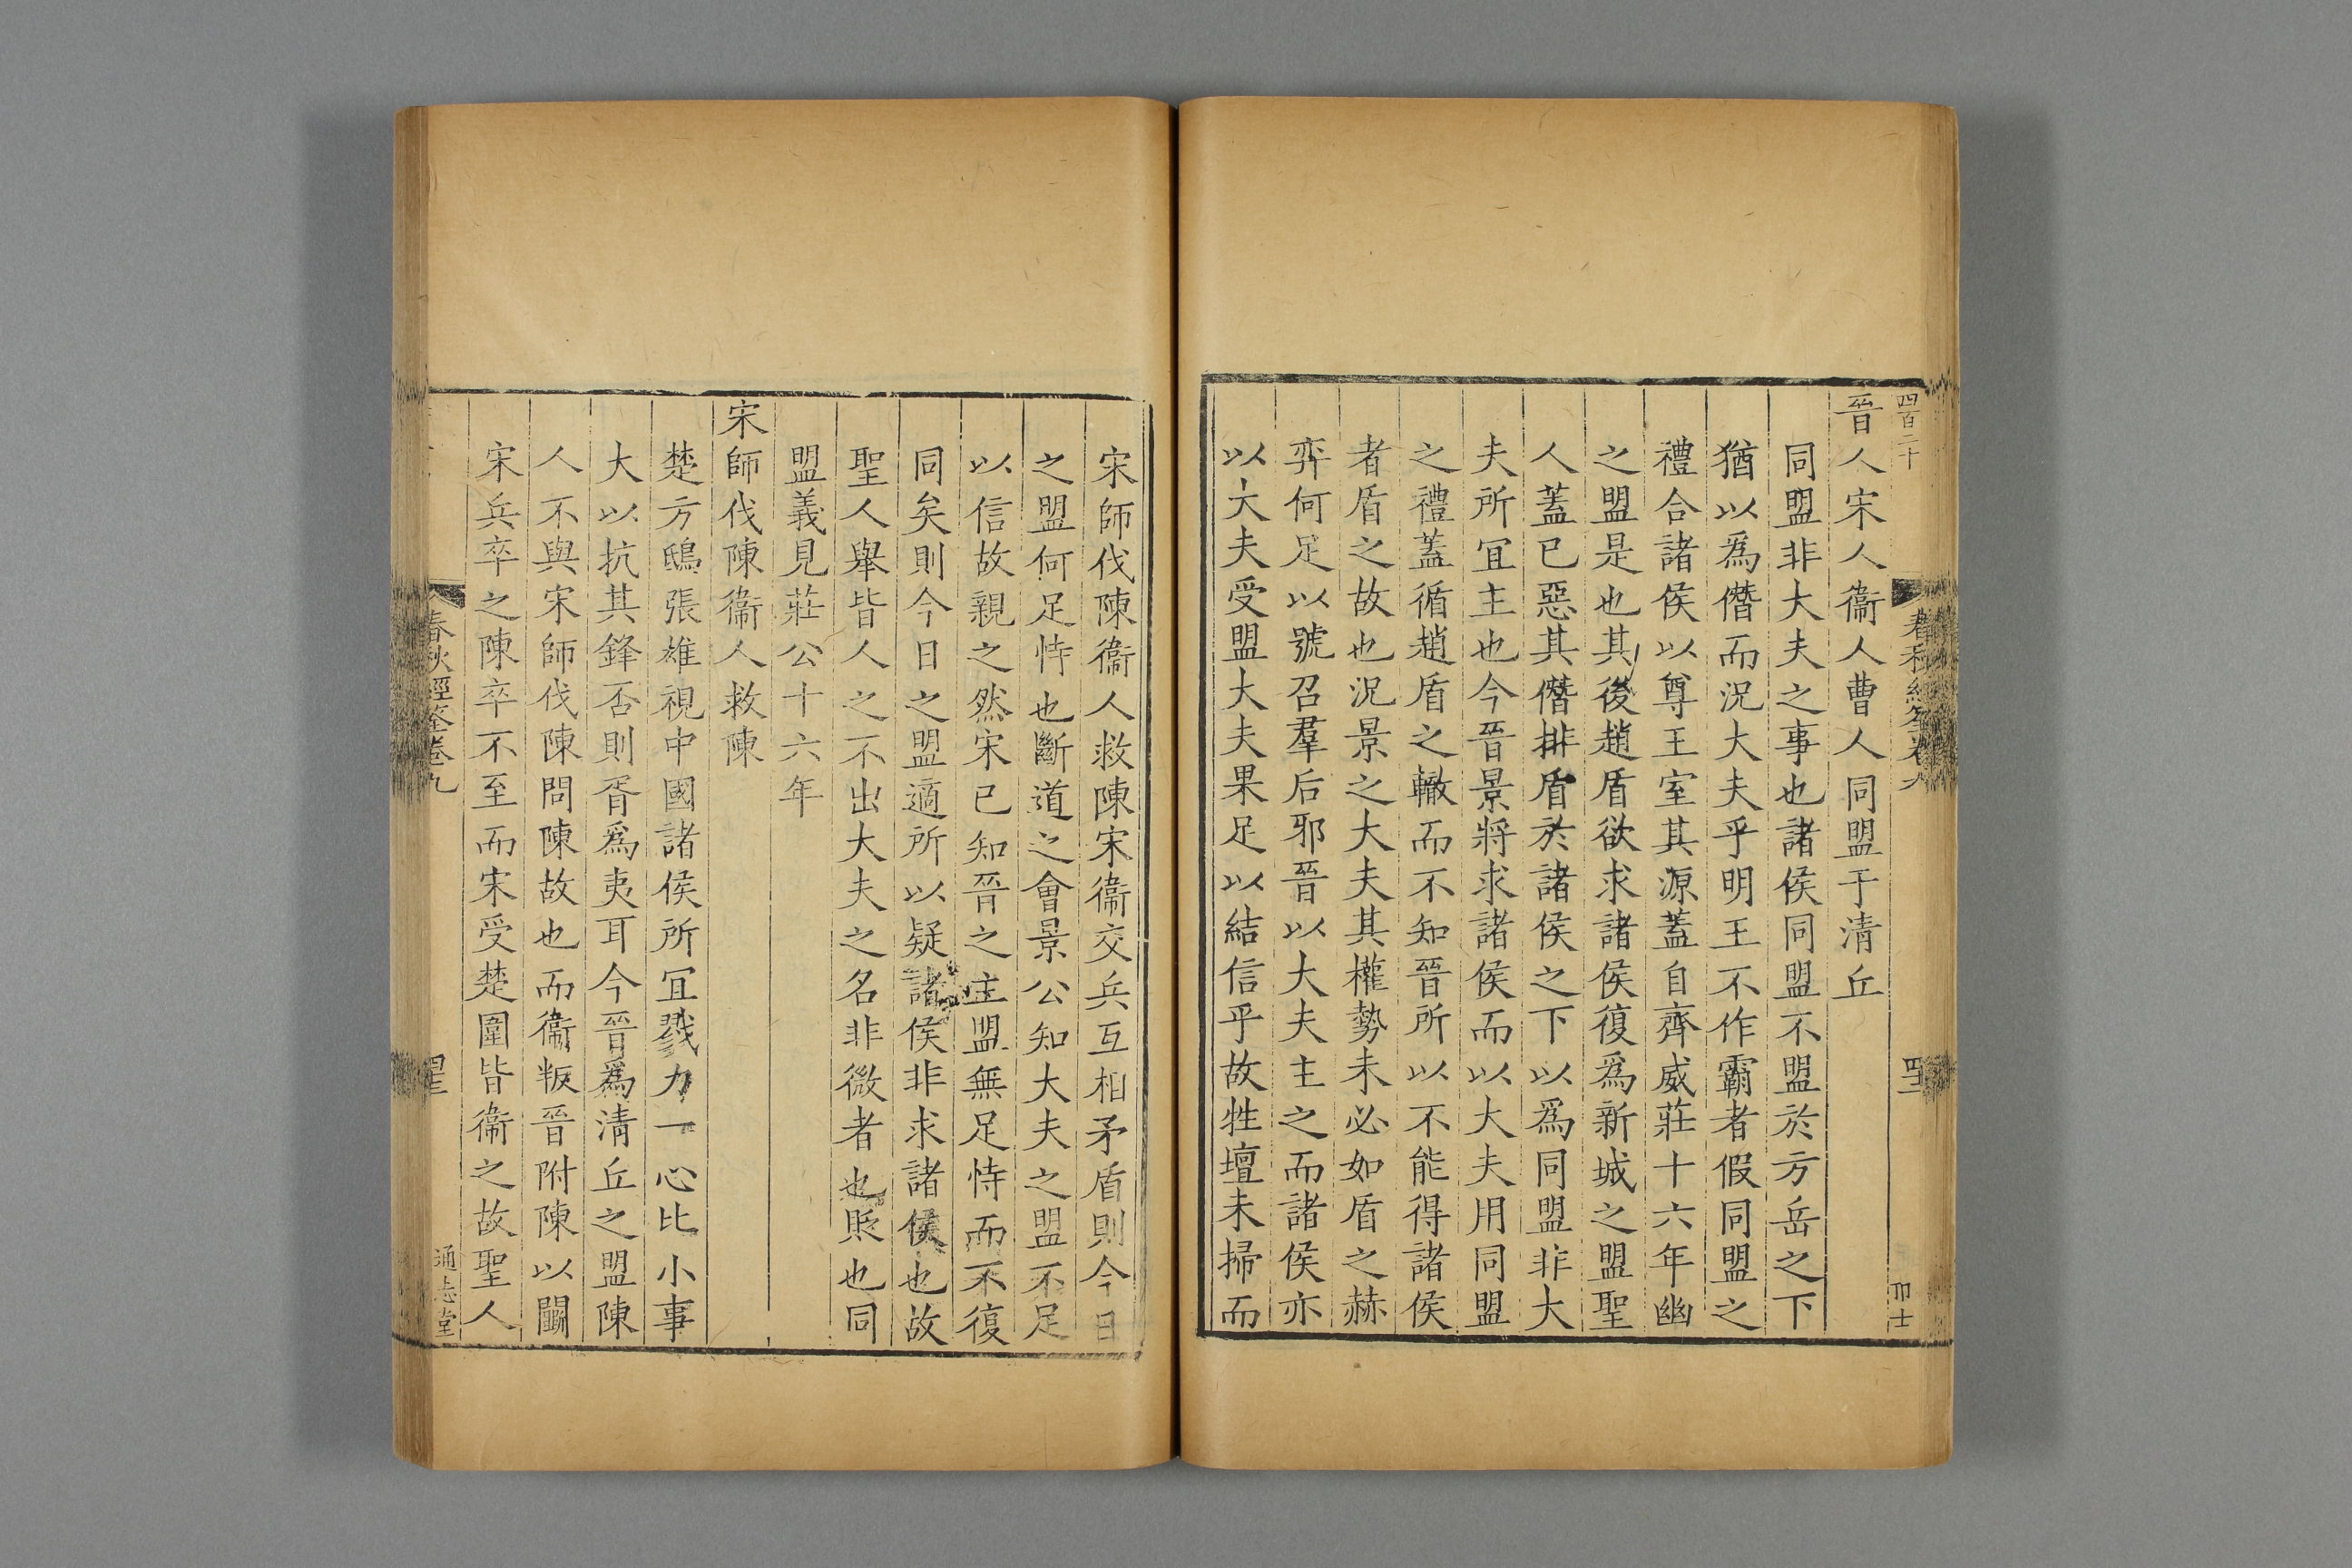 四百二十
春秋經筌卷九
晉人宋人衞人曹人同盟于清丘
同盟非大夫之事也諸侯同盟不盟於方岳之下
猶以爲僭而況大夫乎明王不作霸者假同盟之
禮合諸侯以尊王室其源蓋自齊威莊十六年幽
之盟是也其後趙盾欲求諸侯復爲新城之盟聖
人蓋已惡其僭排盾於諸侯之下以爲同盟非大
夫所宜主也今晉景將求諸侯而以大夫用同盟
之禮蓋循趙盾之轍而不知晉所以不能得諸侯
者盾之故也況景之大夫其權勢未必如盾之赫
弈何足以號召羣后邪晉以大夫主之而諸侯亦
以大夫受盟大夫果足以結信乎故牲壇未掃而
宋師伐陳衞人救陳宋衞交兵互相矛盾則今日
之盟何足恃也斷道之會景公知大夫之盟不足
以信故親之然宋已知晉之主盟無足恃而不復
同矣則今日之盟適所以疑諸侯非求諸侯也故
聖人舉皆人之不出大夫之名非微者也貶也同
盟義見莊公十六年
宋師伐陳衞人救陳
楚方鴟張雄視中國諸侯所宜戮力一心比小事
大以抗其鋒否則胥爲夷耳今晉爲清丘之盟陳
人不與宋師伐陳問陳故也而衞叛晉附陳以鬭
宋兵卒之陳卒不至而宋受楚圍皆衞之故聖人
春秋經筌卷九
通志堂